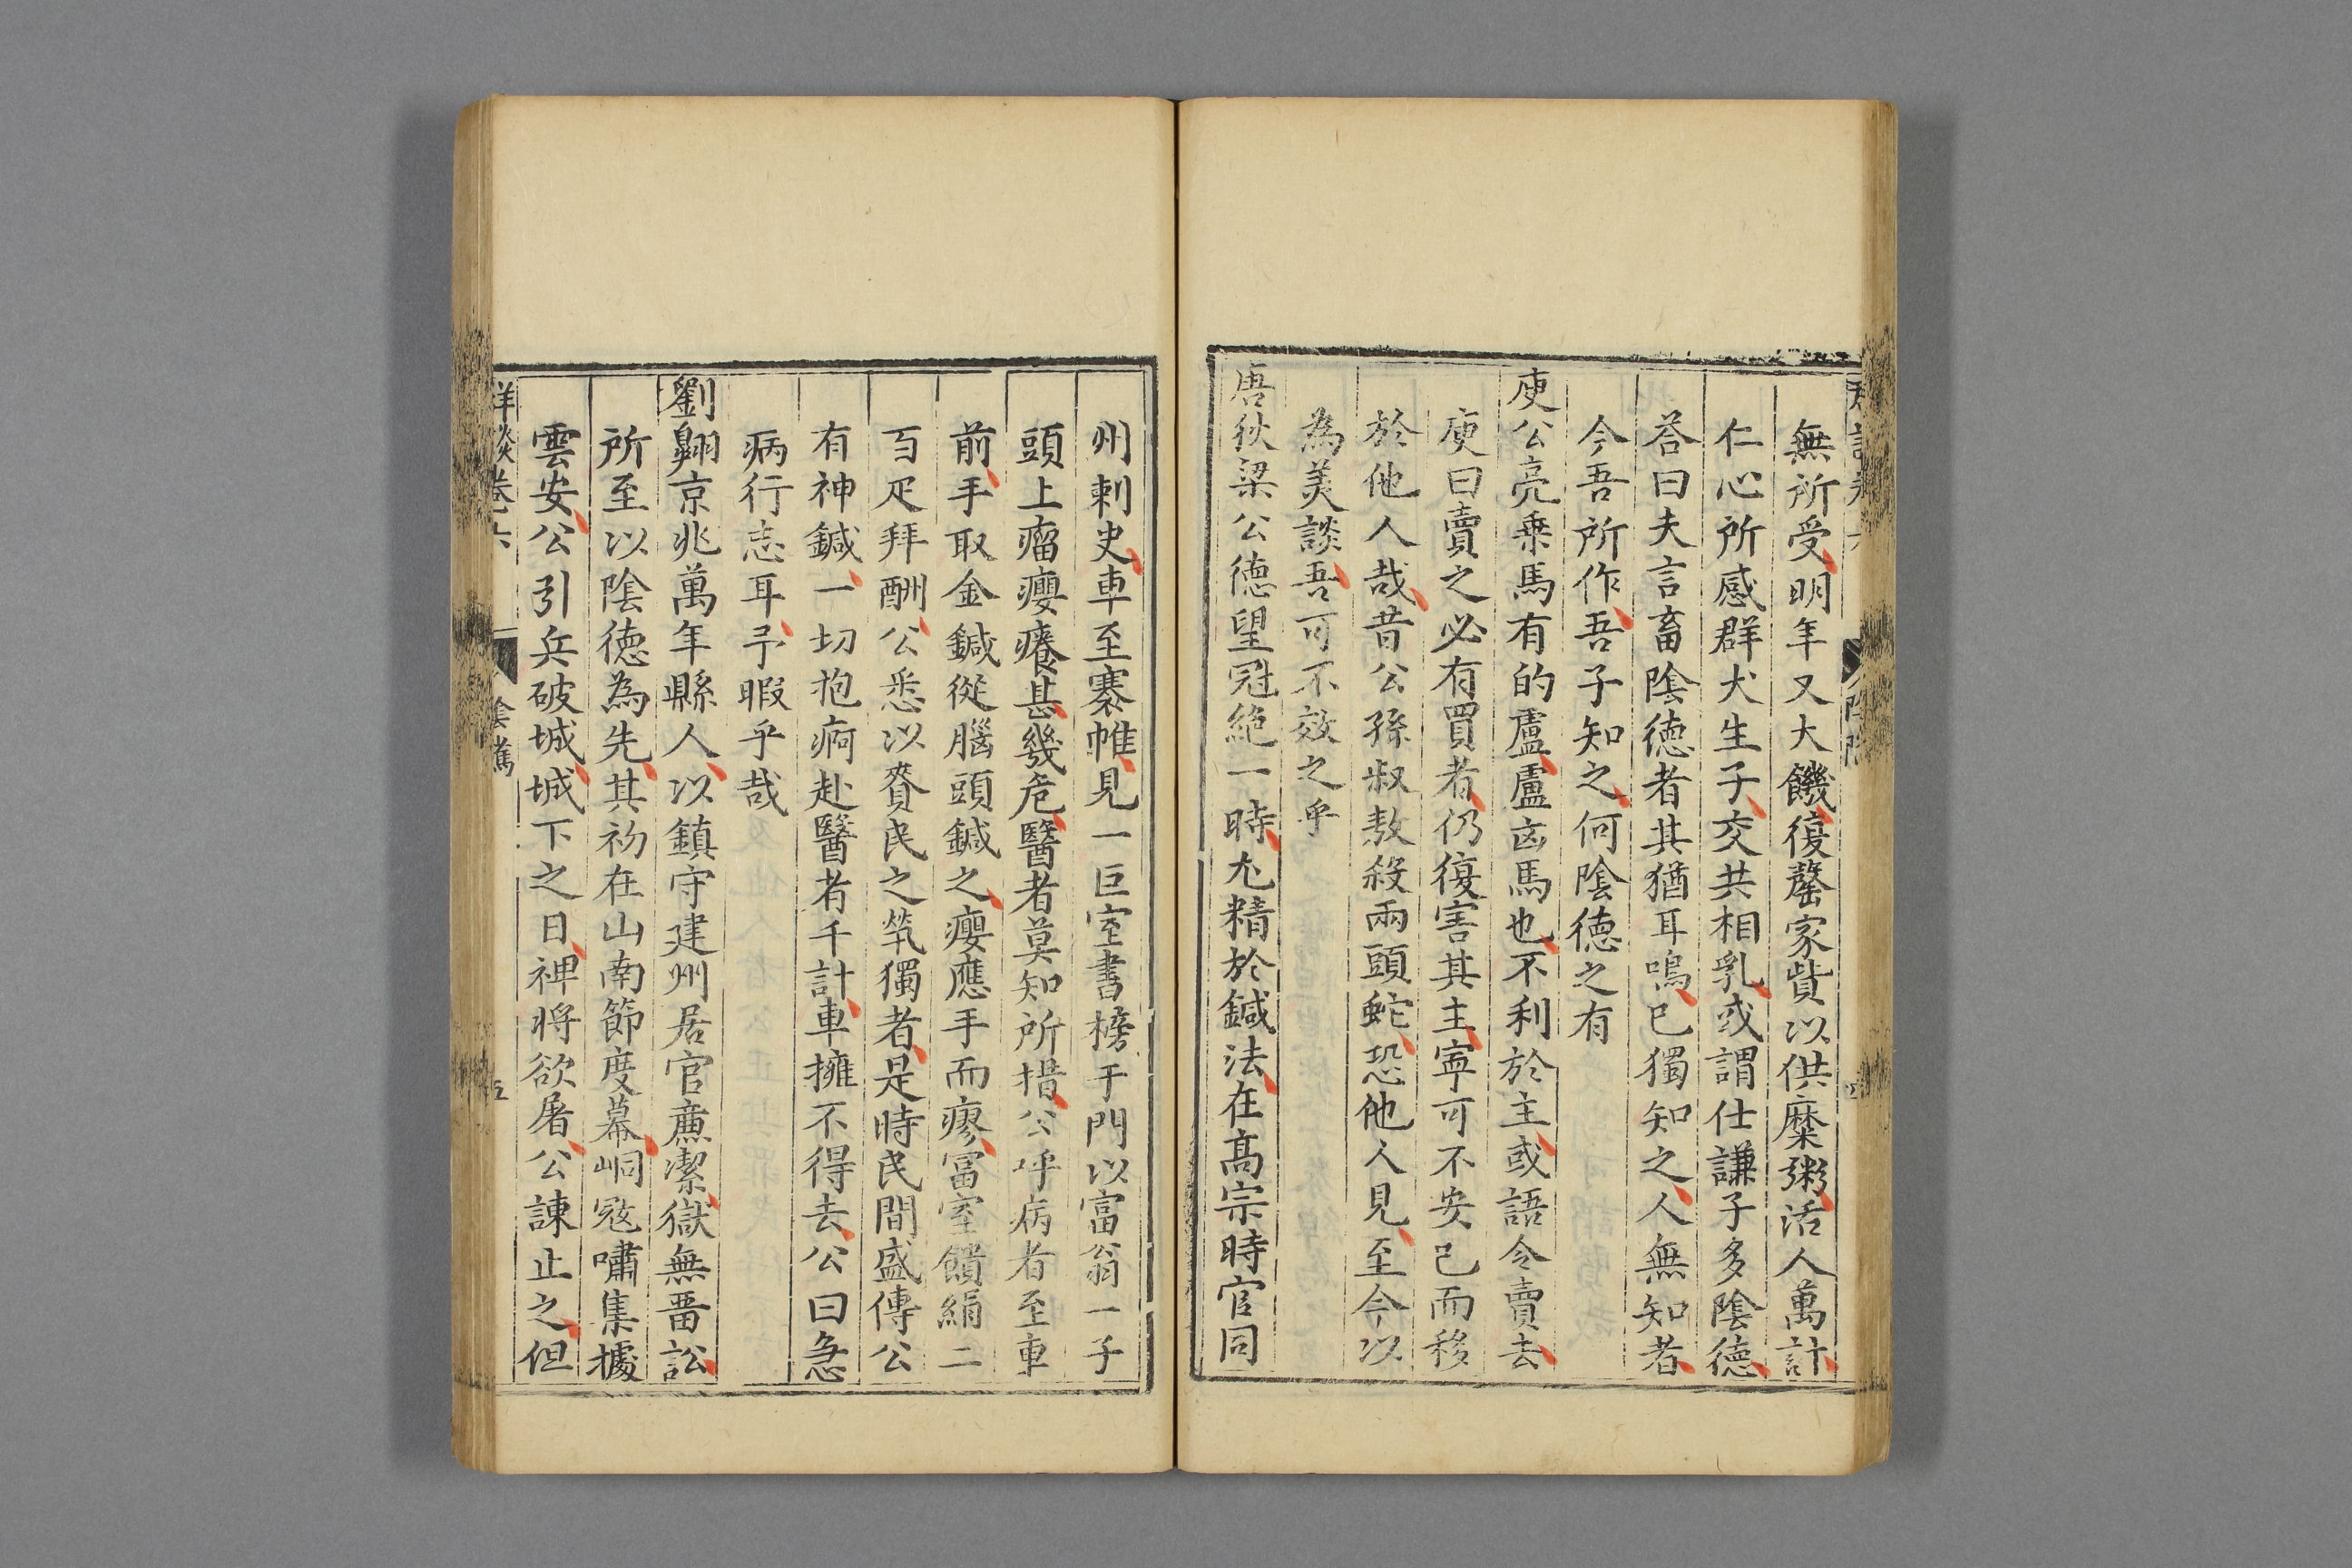 無所受明年又大饑復罄家貲以供糜粥活人萬計
仁心所感群犬生子交共相乳或謂仕謙子多陰德
荅曰夫言畜陰德者其猶耳鳴己獨知之人無知者
今吾所作吾子知之何陰德之有
庾公亮乗馬有的盧盧凶馬也不利於主或語令賣去
庾曰賣之必有買者仍復害其主寕可不安己而移
於他人哉昔公孫叔敖殺兩頭蛇恐他人見至今以
為美談吾可不效之乎
唐狄梁公德望冠絶一時尤精於鍼法在髙宗時官同
州刺史車至褰帷見一巨室書榜于門以富翁一子
頭上瘤癭癢甚幾危醫者莫知所措公呼病者至車
前手取金鍼從腦頭鍼之癭應手而瘳冨室饋絹二
百疋拜酬公悉以賚民之煢獨者是時民間盛傳公
有神鍼一切抱痾赴醫者千計車擁不得去公曰急
病行志耳予暇乎哉
劉翺京兆萬年縣人以鎮守建州居官亷潔獄無畱訟
所至以陰德為先其初在山南節度幕峒冦嘯集據
雲安公引兵破城城下之日裨将欲屠公諫止之但
卷六
五